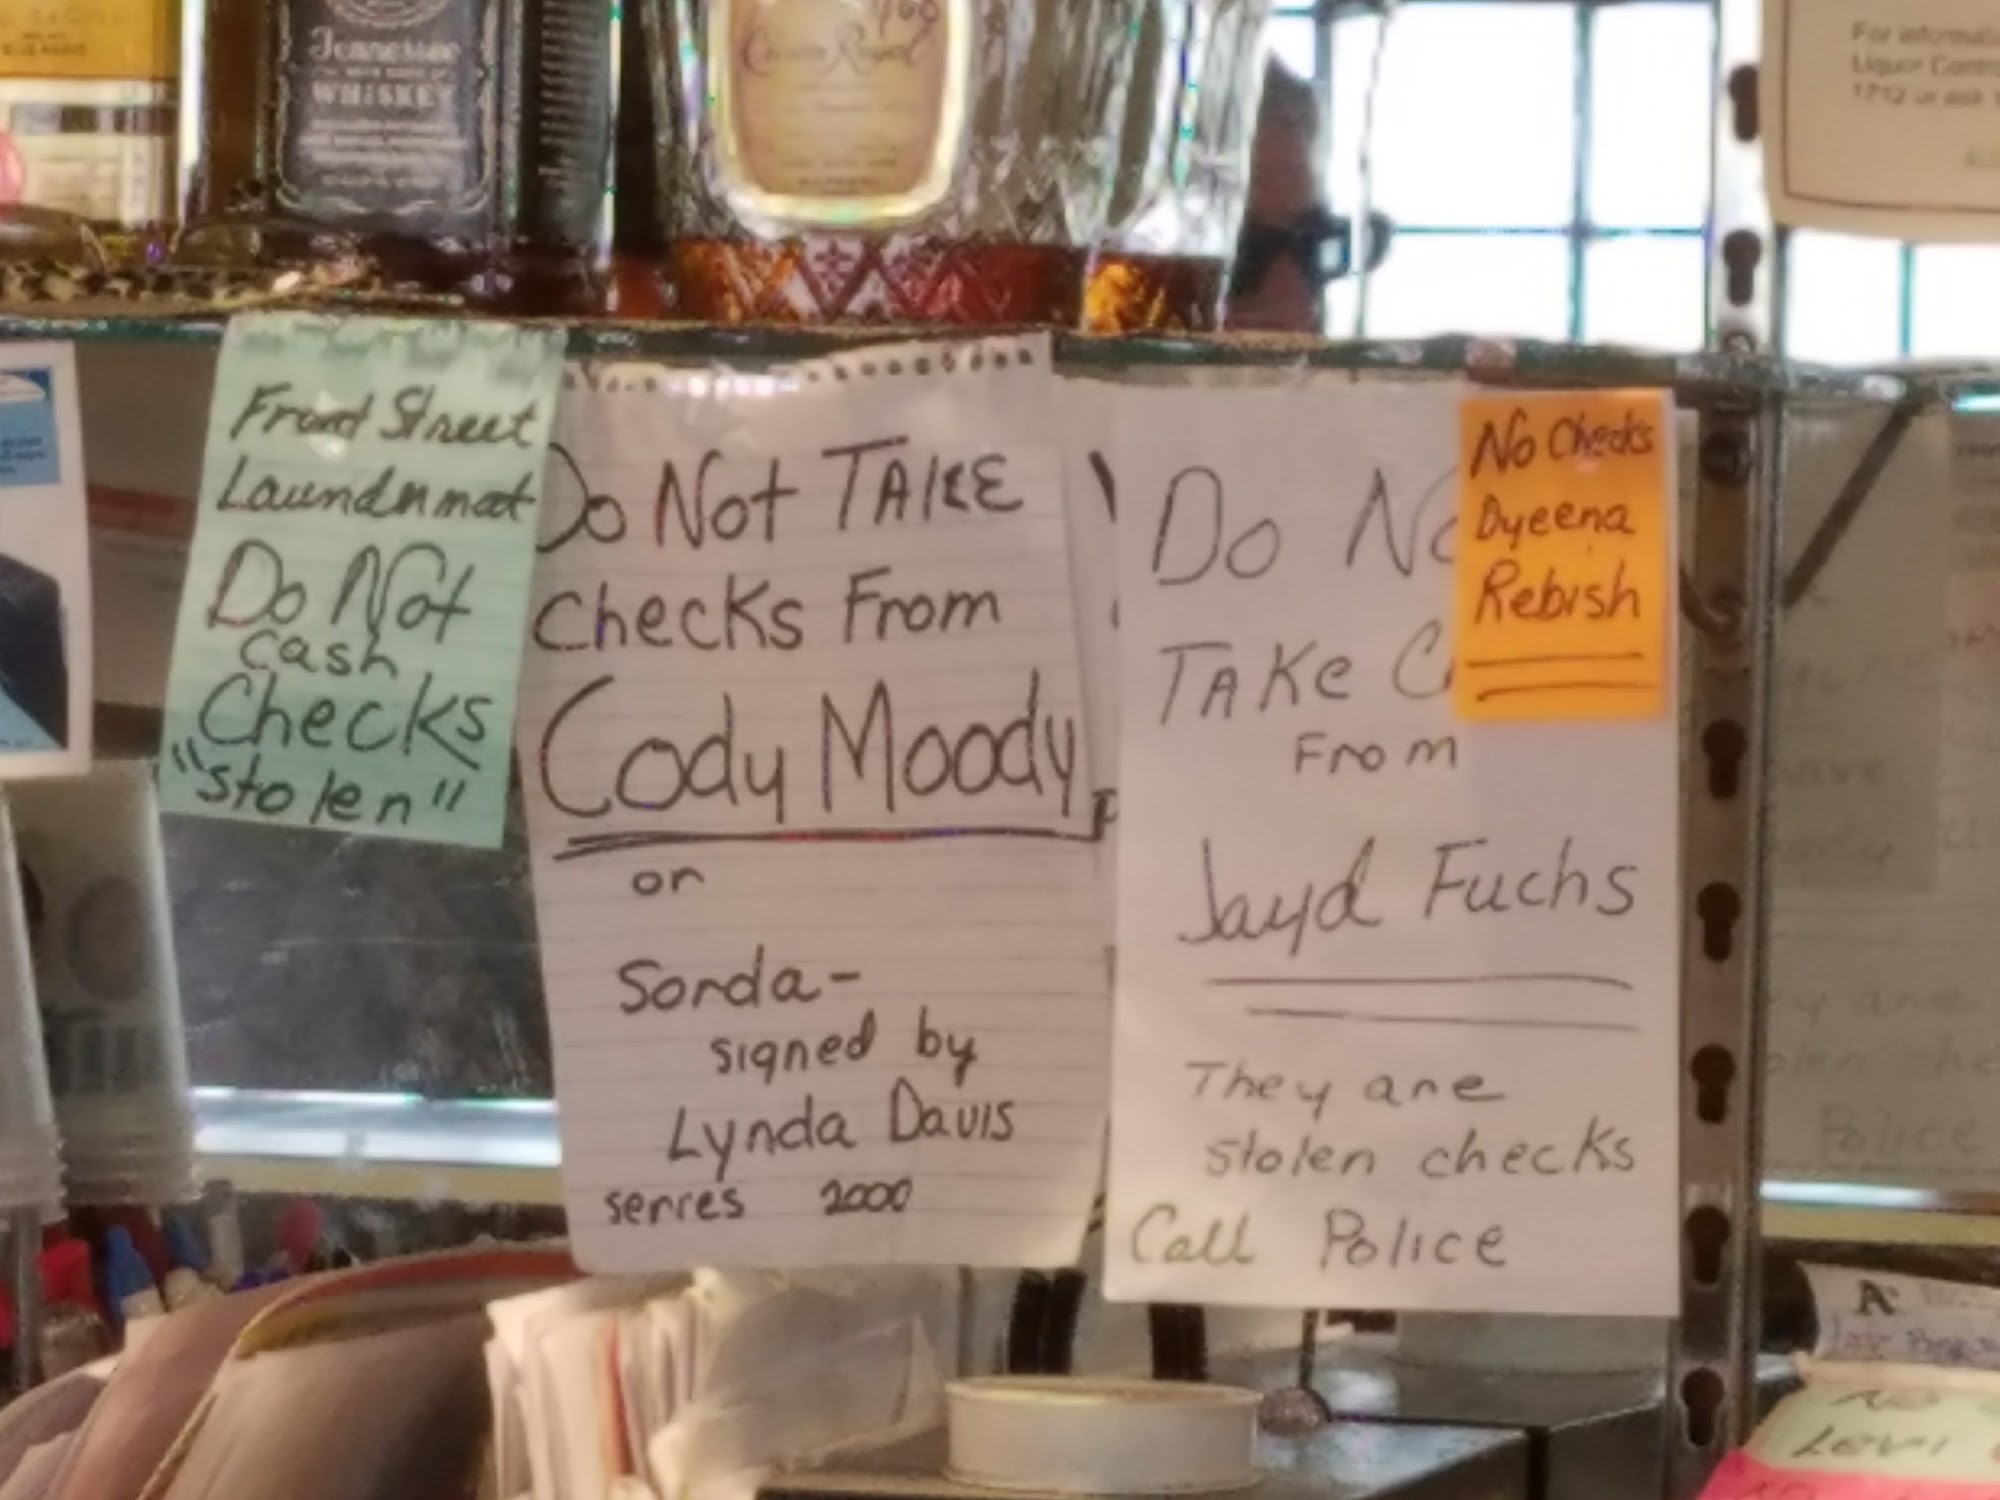 Tennessee
WHISKEY
Crown Royal
For informati
Liquor Contro
1712 or ask
Front Street
Laundrymat
Do Not
cash
Checks
"stolen"
Do Not TAKE
Checks From
Cody Moody
or
Sonda-
signed by
Lynda Davis
series 2000
Do No
TAKe C
From
Jayd Fuchs
They are
stolen checks
Call Police
No Checks
Dyeena
Rebish
Police
No
Levi